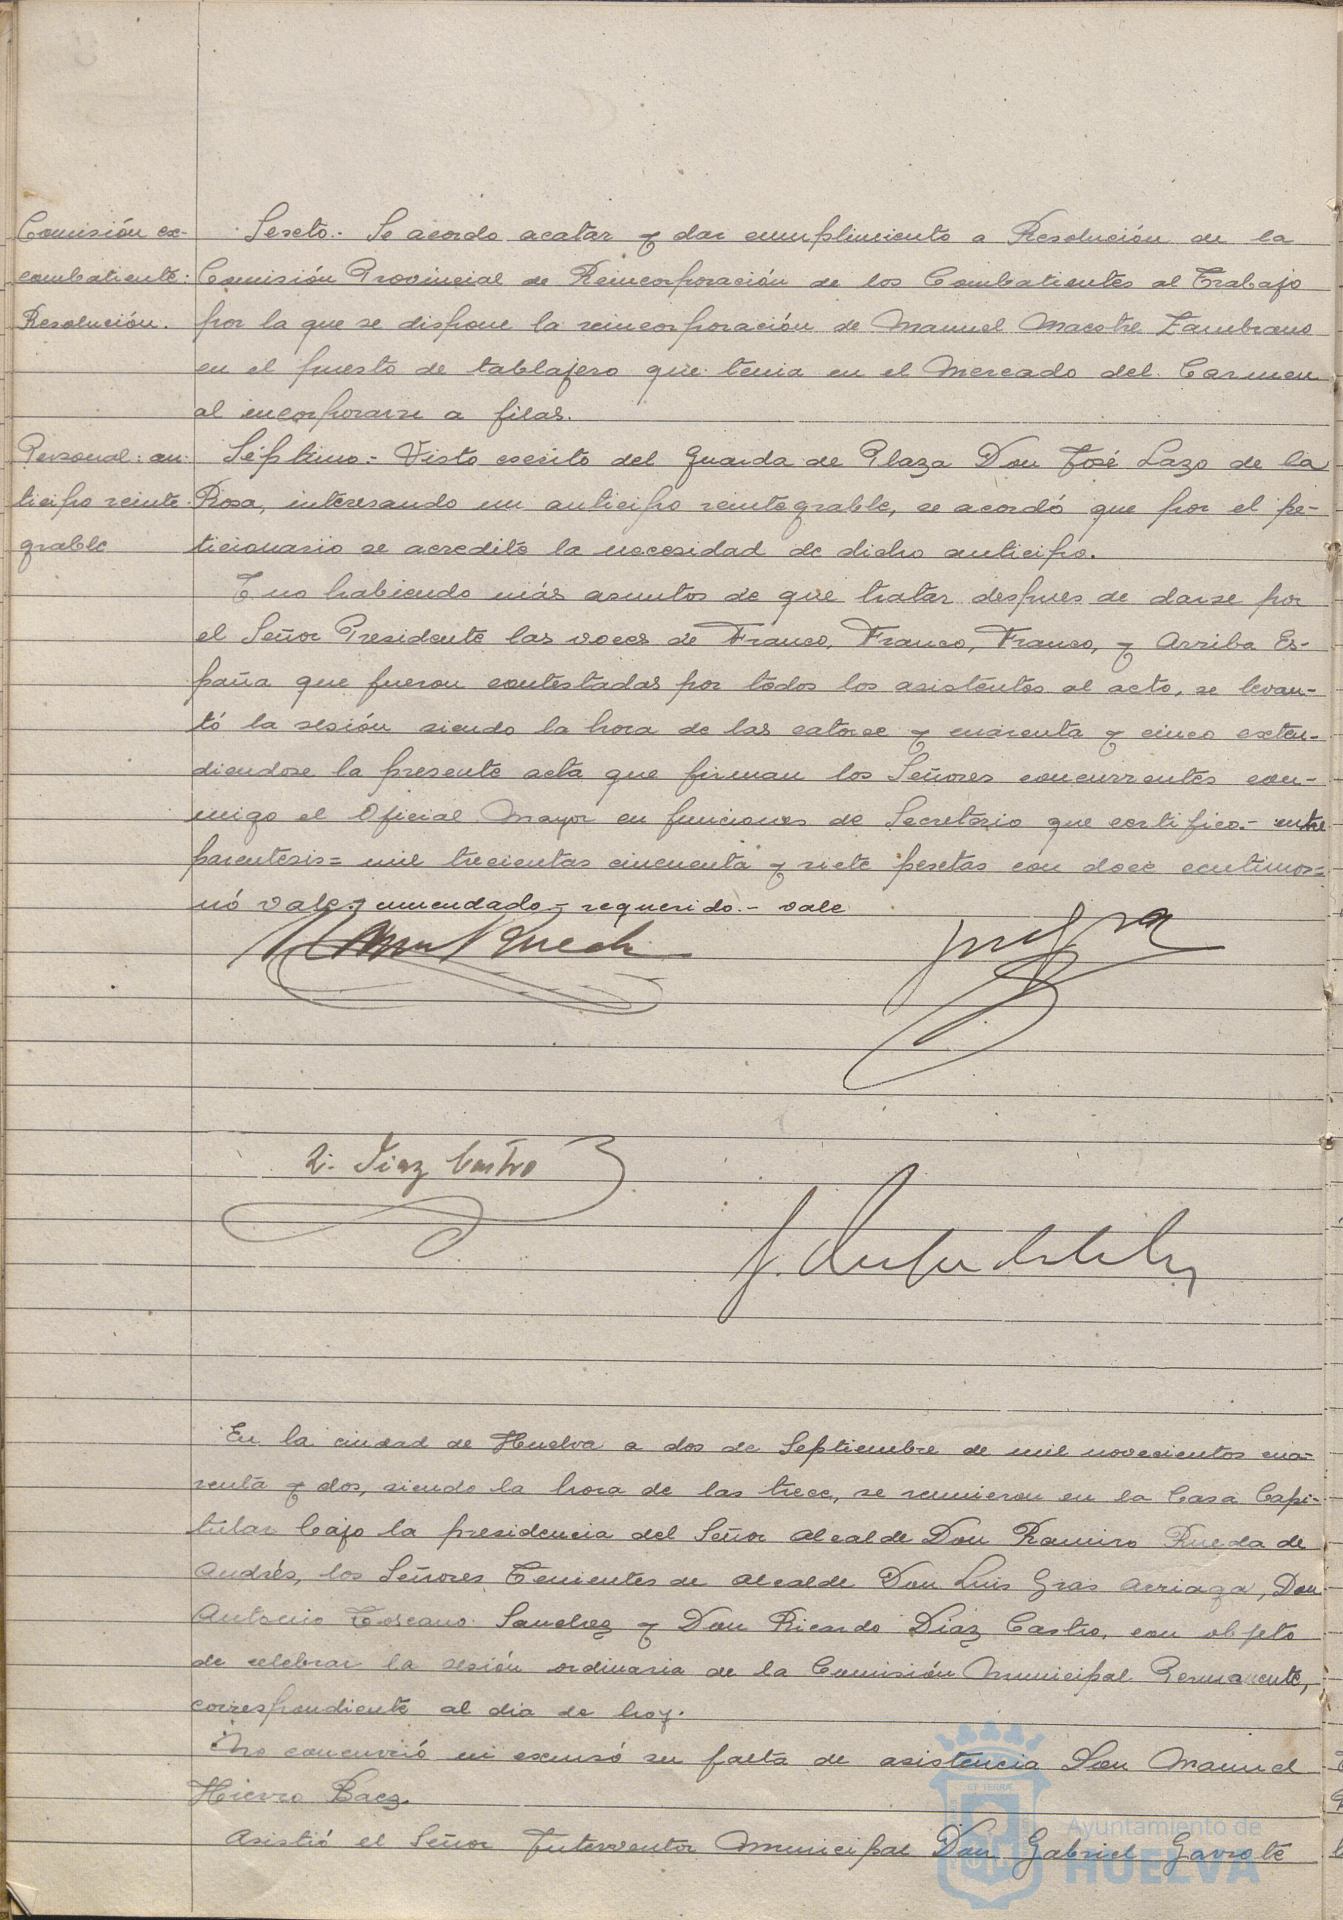 Comisión ex-
combatiente:
Resolución.
Sexto.- Se acordo acatar y dar cumplimiento a Resolución de la
Comisión Provincial de Reincorporación de los Combatientes al Trabajo
por la que se dispone la reincorporación de Manuel Macotre Zambrano
en el puesto de tablajero que tenia en el Mercado del Carmen
al incorporarse a filas.
Personal: an-
ticipo reinte-
grable
Séptimo.- Visto escrito del Guarda de Plaza Don José Lazo de la
Rosa, interesando un anticipo reintegrable, se acordó que por el pe-
ticionario se acredite la necesidad de dicho anticipo.
Y no habiendo más asuntos de que tratar despues de darse por
el Señor Presidente las voces de Franco, Franco, Franco, y Arriba Es-
paña que fueron contestadas por todos los asistentes al acto, se levan-
tó la sesión siendo la hora de las catorce y cuarenta y cinco exten-
diendose la presente acta que firman los Señores concurrentes con-
migo el Oficial Mayor en funciones de Secretario que certifico.- entre
parentesis= mil trecientas cincuenta y siete pesetas con doce centimos=
nó vale= enmendado= requerido.- vale
R. Diaz Castro
En la ciudad de Huelva a dos de Septiembre de mil novecientos cua-
renta y dos, siendo la hora de las trece, se reunieron en la Casa Capi-
tular bajo la presidencia del Señor Alcalde Don Ramiro Rueda de
Andrés, los Señores Tenientes de Alcalde Don Luis Gras Arriaga, Don
Antonio Toscano Sanchez y Don Ricardo Diaz Castro, con objeto
de celebrar la sesión ordinaria de la Comisión Municipal Permanente,
correspondiente al dia de hoy.
No concurrió ni excusó su falta de asistencia Don Manuel
Hierro Baez.
Asistió el Señor Interventor Municipal Don Gabriel Garrote
Ayuntamiento de
HUELVA